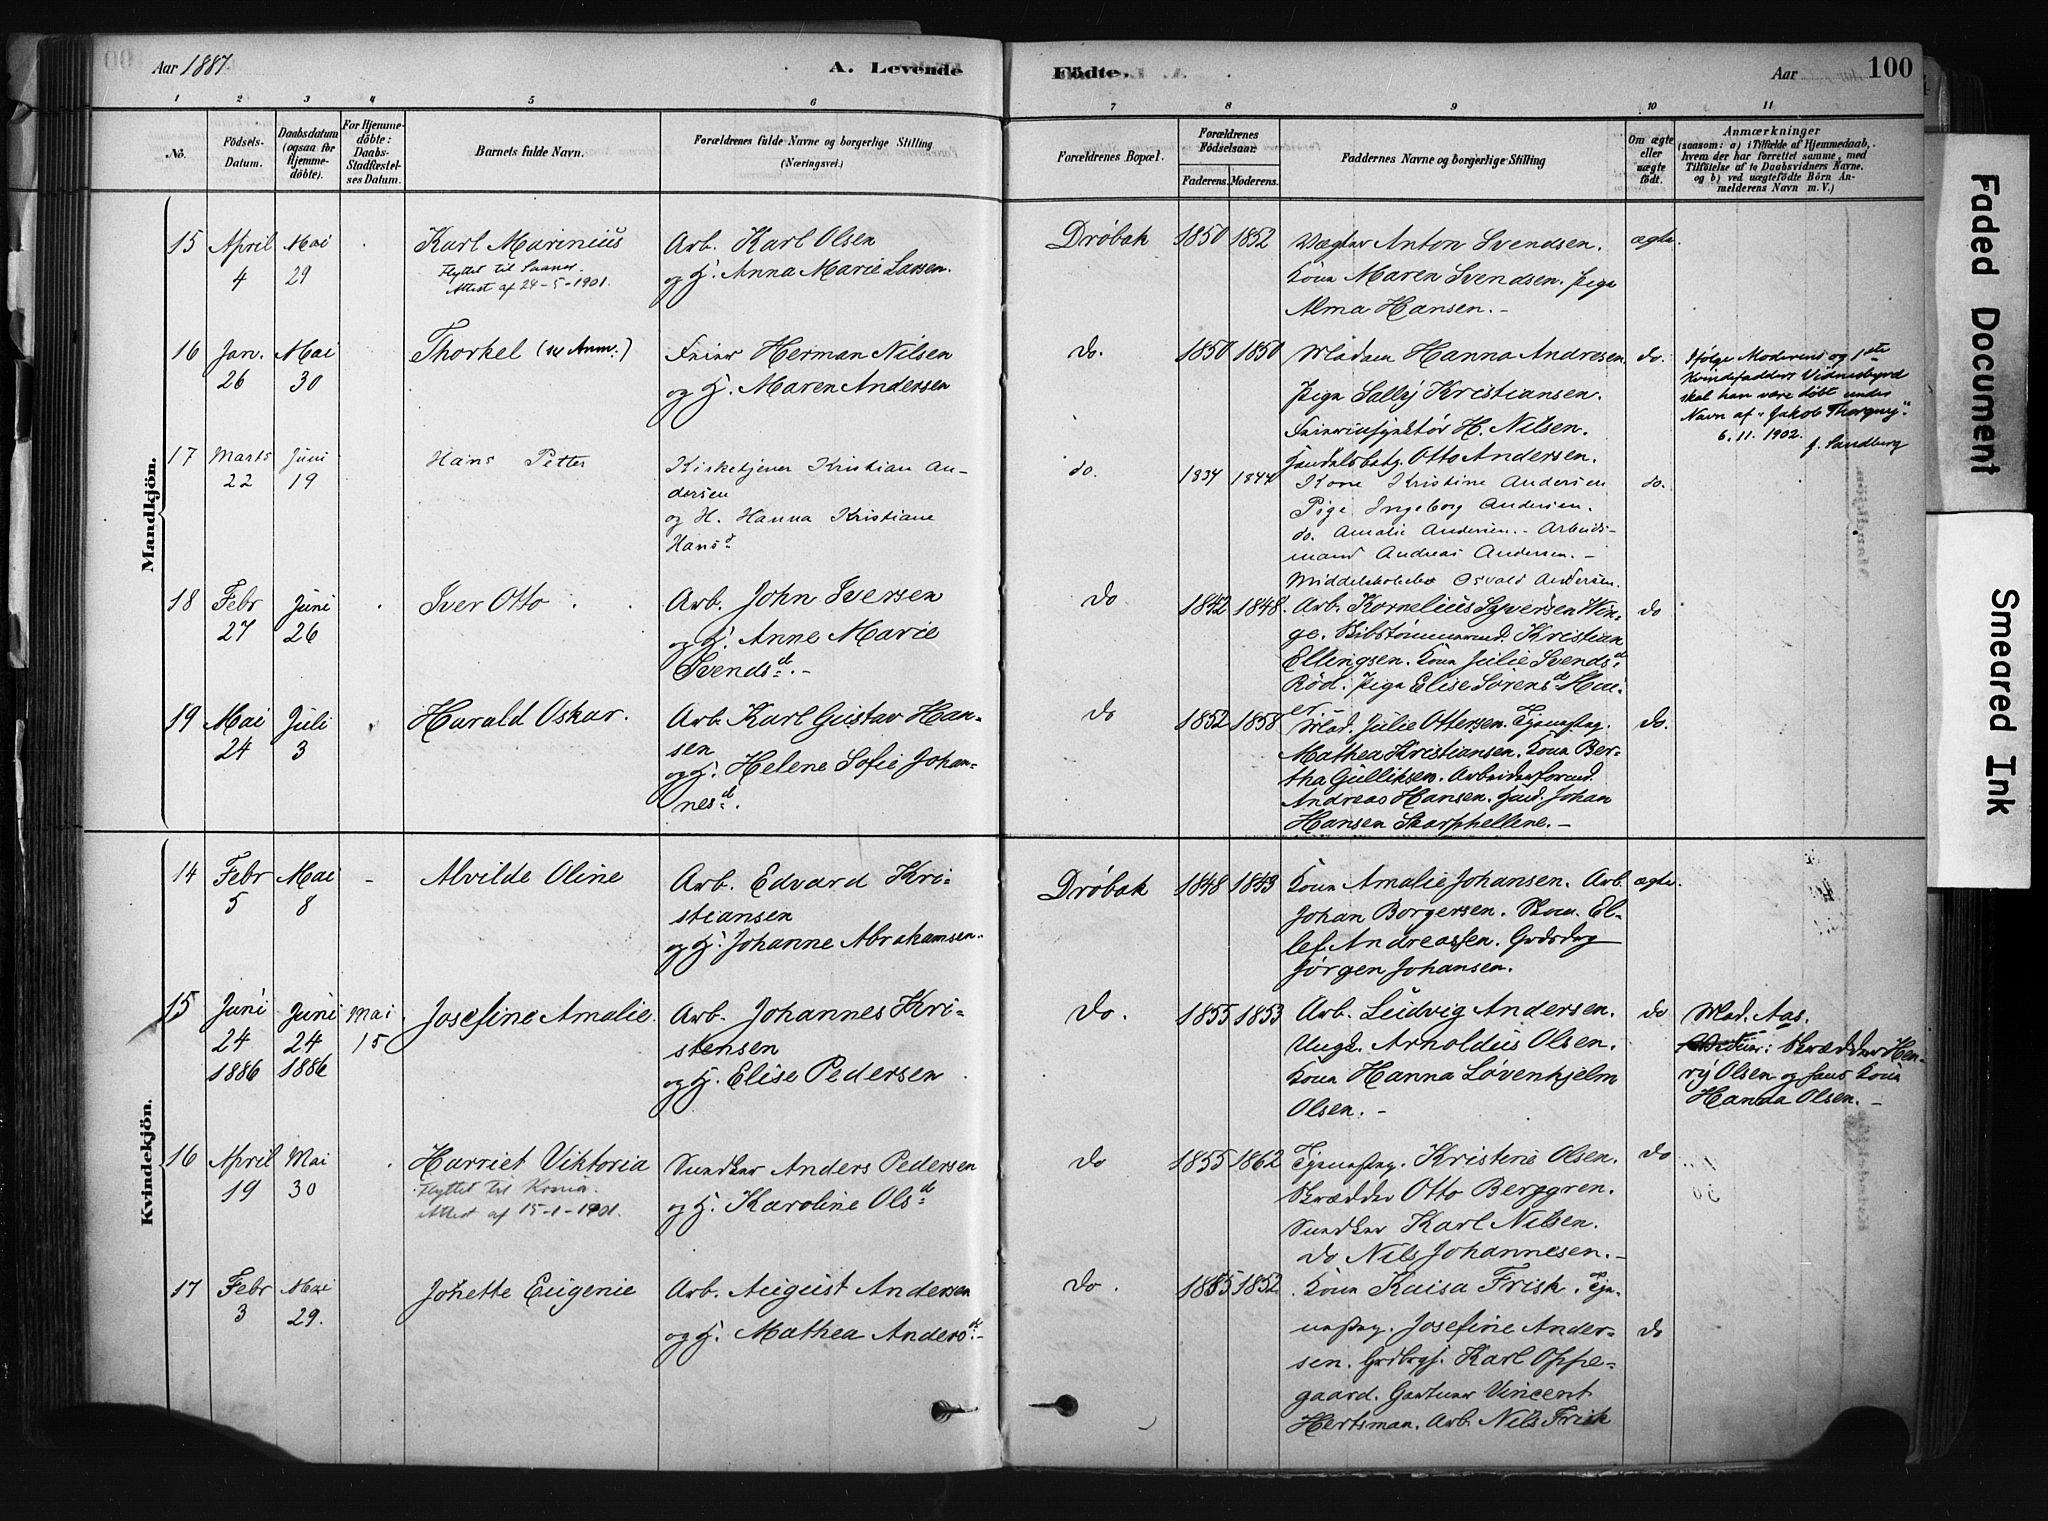 Aar 1887.
A. Levende
Födte.
Aar
100
1 2 3 4 5 6 7 8 9 10 11
No.
Födsels-Datum.
Daabsdatum (ogsaa for Hjemme-döbte).
For Hjemme-döbte: Daabs-Stadfæstel-ses Datum.
Barnets fulde Navn.
Forældrenes fulde Navne og borgerlige Stilling (Næringsvei.)
Forældrenes Bopæl.
Forældrenes Födselsaar.
Faderens. Moderens.
Faddernes Navne og borgerlige Stilling
Om ægte eller uægte födt.
Anmærkninger
(saasom: a) i Tilfælde af Hjemmedaab, hvem der har forrettet samme, med Tilföielse af to Daabsvidners Navne. og b) ved uægtefödte Börn An-melderens Navn m. V.)
Mandkjön.
15 April 4 Mai 29
Karl Marinius
Flyttet til
Attest af 24-5-1901.
Arb. Karl Olsen
og H. Anna Marie Larsen.
Drøbak 1850 1852
Vægter Anton Svendsen.
Kone Maren Svendsen. Pige
Alma Hansen. -
ægte.
16 Jan. 26 Mai 30
Thorkel (se Anm.)
Herman Nilsen
og H. Maren Andersen
do. 1850 1850
Madam Hanna Andresen
Pige Sally Kristiansen.
H. Nilsen.
Otto Andersen.
do.
Ifølge Moderens og 1ste
Kvindefadders Vidnesbyrd
skal han være døbt under
Navn af "Jakob Thorguy".
6. 11. 1902.
J. Sandberg
17 Marts 22 Juni 19
Hans Petter
Kirketjener Kristian An-
dersen
og H. Hanna Kristiane
Hansd.
do. 1834 1844
Kone Kristine Andersen
Pige Ingeborg Andersen.
do. Amalie Andersen. - Arbeids-
mand Andreas Andersen. -
Middelskoleelev Osvald Andersen.
do.
18 Febr 27 Juni 26
Iver Otto
Arb. John Iversen
og H. Anne Marie
Svendsd. -
do 1842 1848
Arb. Kornelius Syversen Win-
ge. Kristian
Ellingsen. Kone Julie Svendsd.
Röd. Pige Elise Sorensd. Hai-
er
do
19 Mai 24 Juli 3
Harald Oskar.
Arb. Karl Gustav Han-
sen
og H. Helene Sofie Johan-
nesd.
do 1852 1858
Mad. Julie Ottersen. Tjenestpg.
Mathea Kristiansen. Kone Ber-
tha Gulliksen. Arbeiderformd.
Andreas Hansen. Johan
Hansen Skorphellene. -
do.
Kvindekjön.
14 Febr 5 Mai 8 -
Alvilde Oline
Arb. Edvard Kri-
stiansen
og H. Johanne Abrahamsen.
Drøbak 1848 1843
Kone Amalie Johansen. Arb.
Johan Borgersen. El-
lef Andreassen.
Jørgen Johansen.
ægte.
15 Juni 24 1886 Juni 24 1886 Mai 15
Josefine Amalie.
Arb. Johannes Kri-
stensen
og H. Elise Pedersen
do. 1855 1853
Arb. Ludvig Andersen.
Ungk. Arnoldus Olsen.
Kone Hanna Løvenhjelm
Olsen. -
do
Mad. Aas.
Skrædder Hen-
ry Olsen og hans Kone
Hanna Olsen. -
16 April 19 Mai 30
Harriet Viktoria
Flyttet til Krnia.
Attest af 15-1-1901.
Anders Pedersen
og H. Karoline Olsd
do 1855 1862
Tjenestpg. Kristine Olsen.
Skrædder Otto Berggren.
Karl Nilsen.
do Nils Johannesen. -
do
17 Febr 3 Mai 29.
Johette Eugenie
Arb. August Andersen
og H. Mathea Andersd. -
do. 1855 1852
Kone Kaisa Frisk. Tje-
nestpg. Josefine Ander-
sen. Karl Oppe-
gaard. Gartner Vincent
Hertsman. Arb. Nils Frisk
do
Faded Document
Smeared Ink